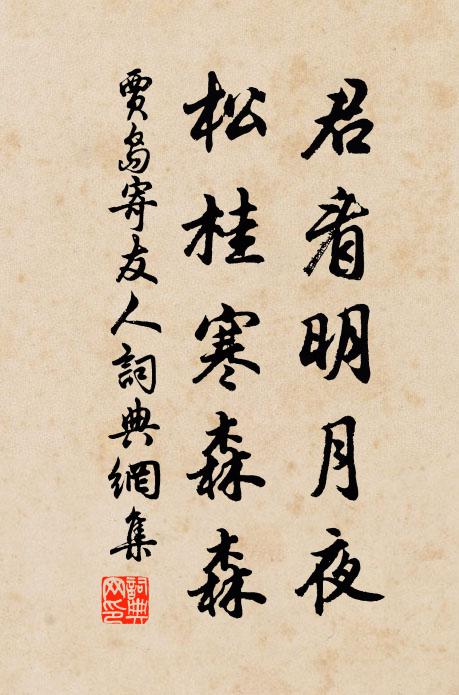 君看明月夜
松桂寒森森
賈島寄友人詞典網集
詞典
网印